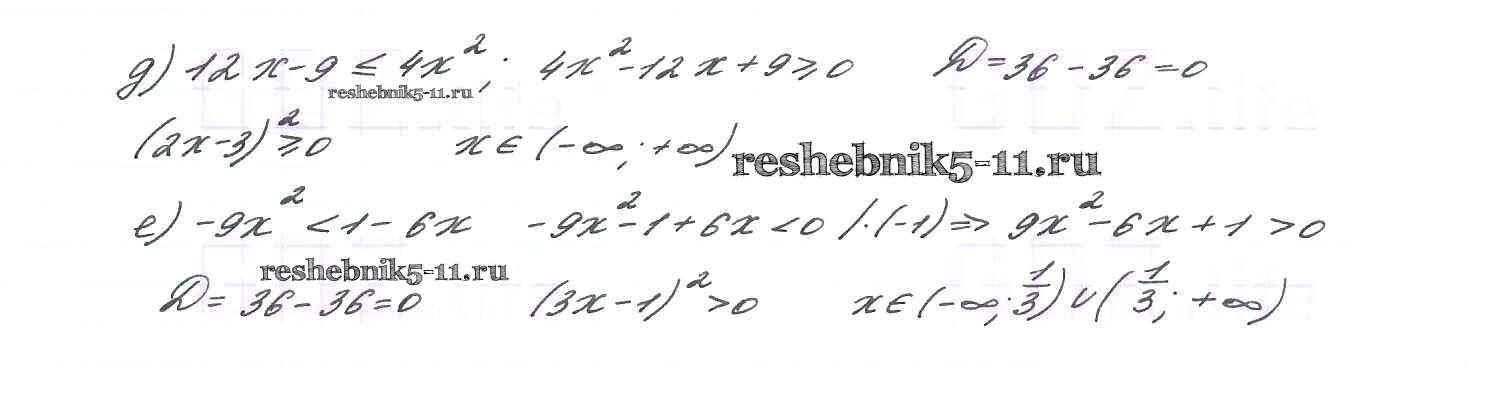 д) 12x-9 ≤ 4x²; 4x²-12x+9≥0 D=36-36=0
reshebnik5-11.ru
(2x-3)²≥0 x∈(-∞;+∞)
reshebnik5-11.ru
е) -9x²<1-6x -9x²-1+6x<0 /·(-1)⇒ 9x²-6x+1>0
reshebnik5-11.ru
D=36-36=0 (3x-1)²>0 x∈(-∞;1/3)∪(1/3;+∞)